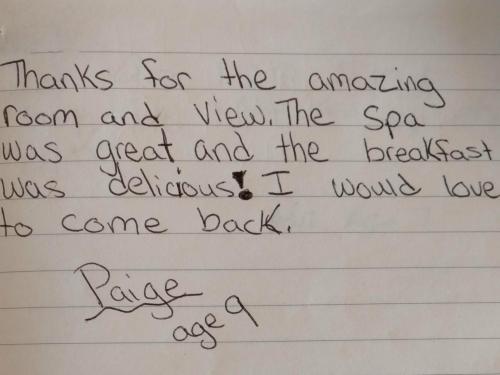 Thanks for the amazing
room and view. The Spa
was great and the breakfast
was delicious! I would love
to come back.
Paige
age 9